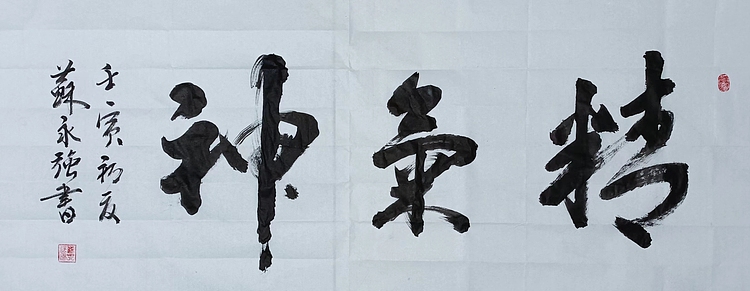 精氣神
壬寅初夏
蘇永強書